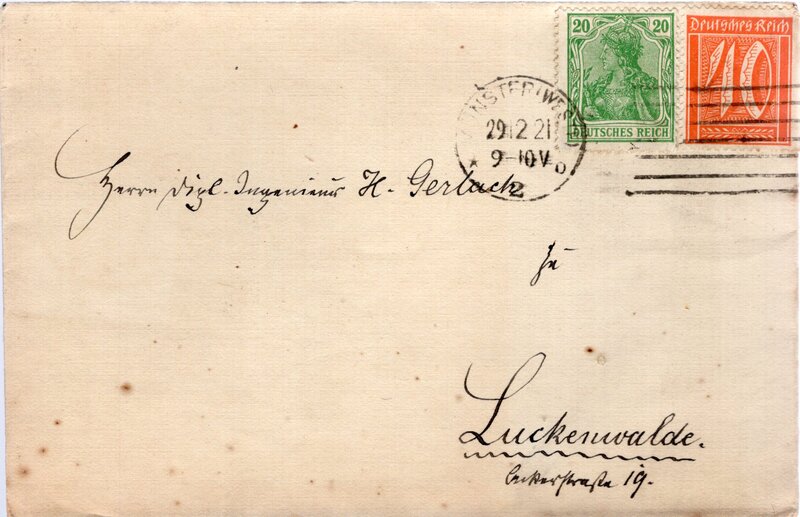 20 20
DEUTSCHES REICH
Deutsches Reich
40
MÜNSTER (WESTF
29.12.21
9-10V
* 2 b
Herrn Dipl.-Ingenieur H. Gerlach
zu
Luckenwalde.
19.